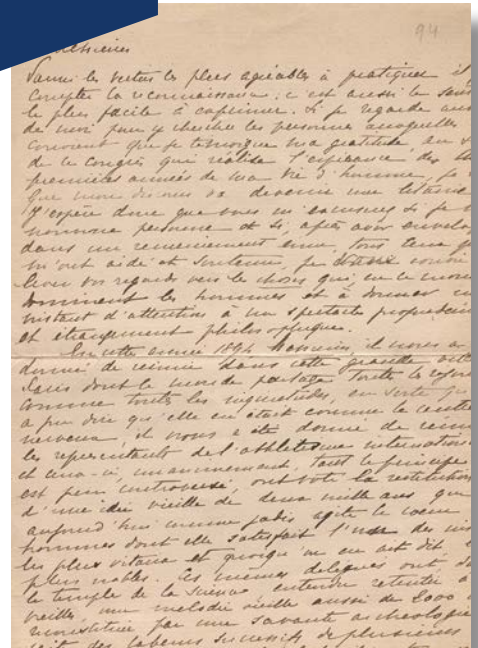 94
Messieurs
Parmi les vertus les plus agréables à pratiquer il
compter la reconnaissance : c'est aussi le sen
le plus facile à exprimer. Si je regarde au
de moi pour y chercher les personnes auxquelles
convient que je témoigne ma gratitude, au
de ce congrès qui réalise l'espérance des
premières années de ma vie d'homme, je
que mon discours va devenir une
J'espère donc que vous m'excuserez si je
nomme personne et si, après avoir envelop
dans un remerciement ému, tous ceux q
m'ont aidé et soutenu, je
lever vos regards vers les choses qui, en ce mon
dominent les hommes et à donner un
instant d'attention à un spectacle
et étrangement philosophique.
En cette année 1894, Messieurs, il nous a
donné de réunir dans cette grande vil
Paris dont le monde partage toutes les
comme toutes les inquiétudes, en sorte qu
a pu dire qu'elle en était comme le centre
nerveux, il nous a été donné de réunir
les représentants de l'athlétisme international
et ceux-ci, unanimement, tant le principe
est peu controversé, ont voté la restitution
d'une idée vieille de deux mille ans qui
aujourd'hui comme jadis agite le coeur
hommes dont elle satisfait l'un des in
les plus vitaux et quoiqu'on en ait dit,
plus nobles. Ces mêmes délégués ont
le temple de la Science entendu retentir à
oreilles, une mélodie vieille aussi de 2000
reconstituée par une savante archéologie
fait des labeurs successifs de plusieurs